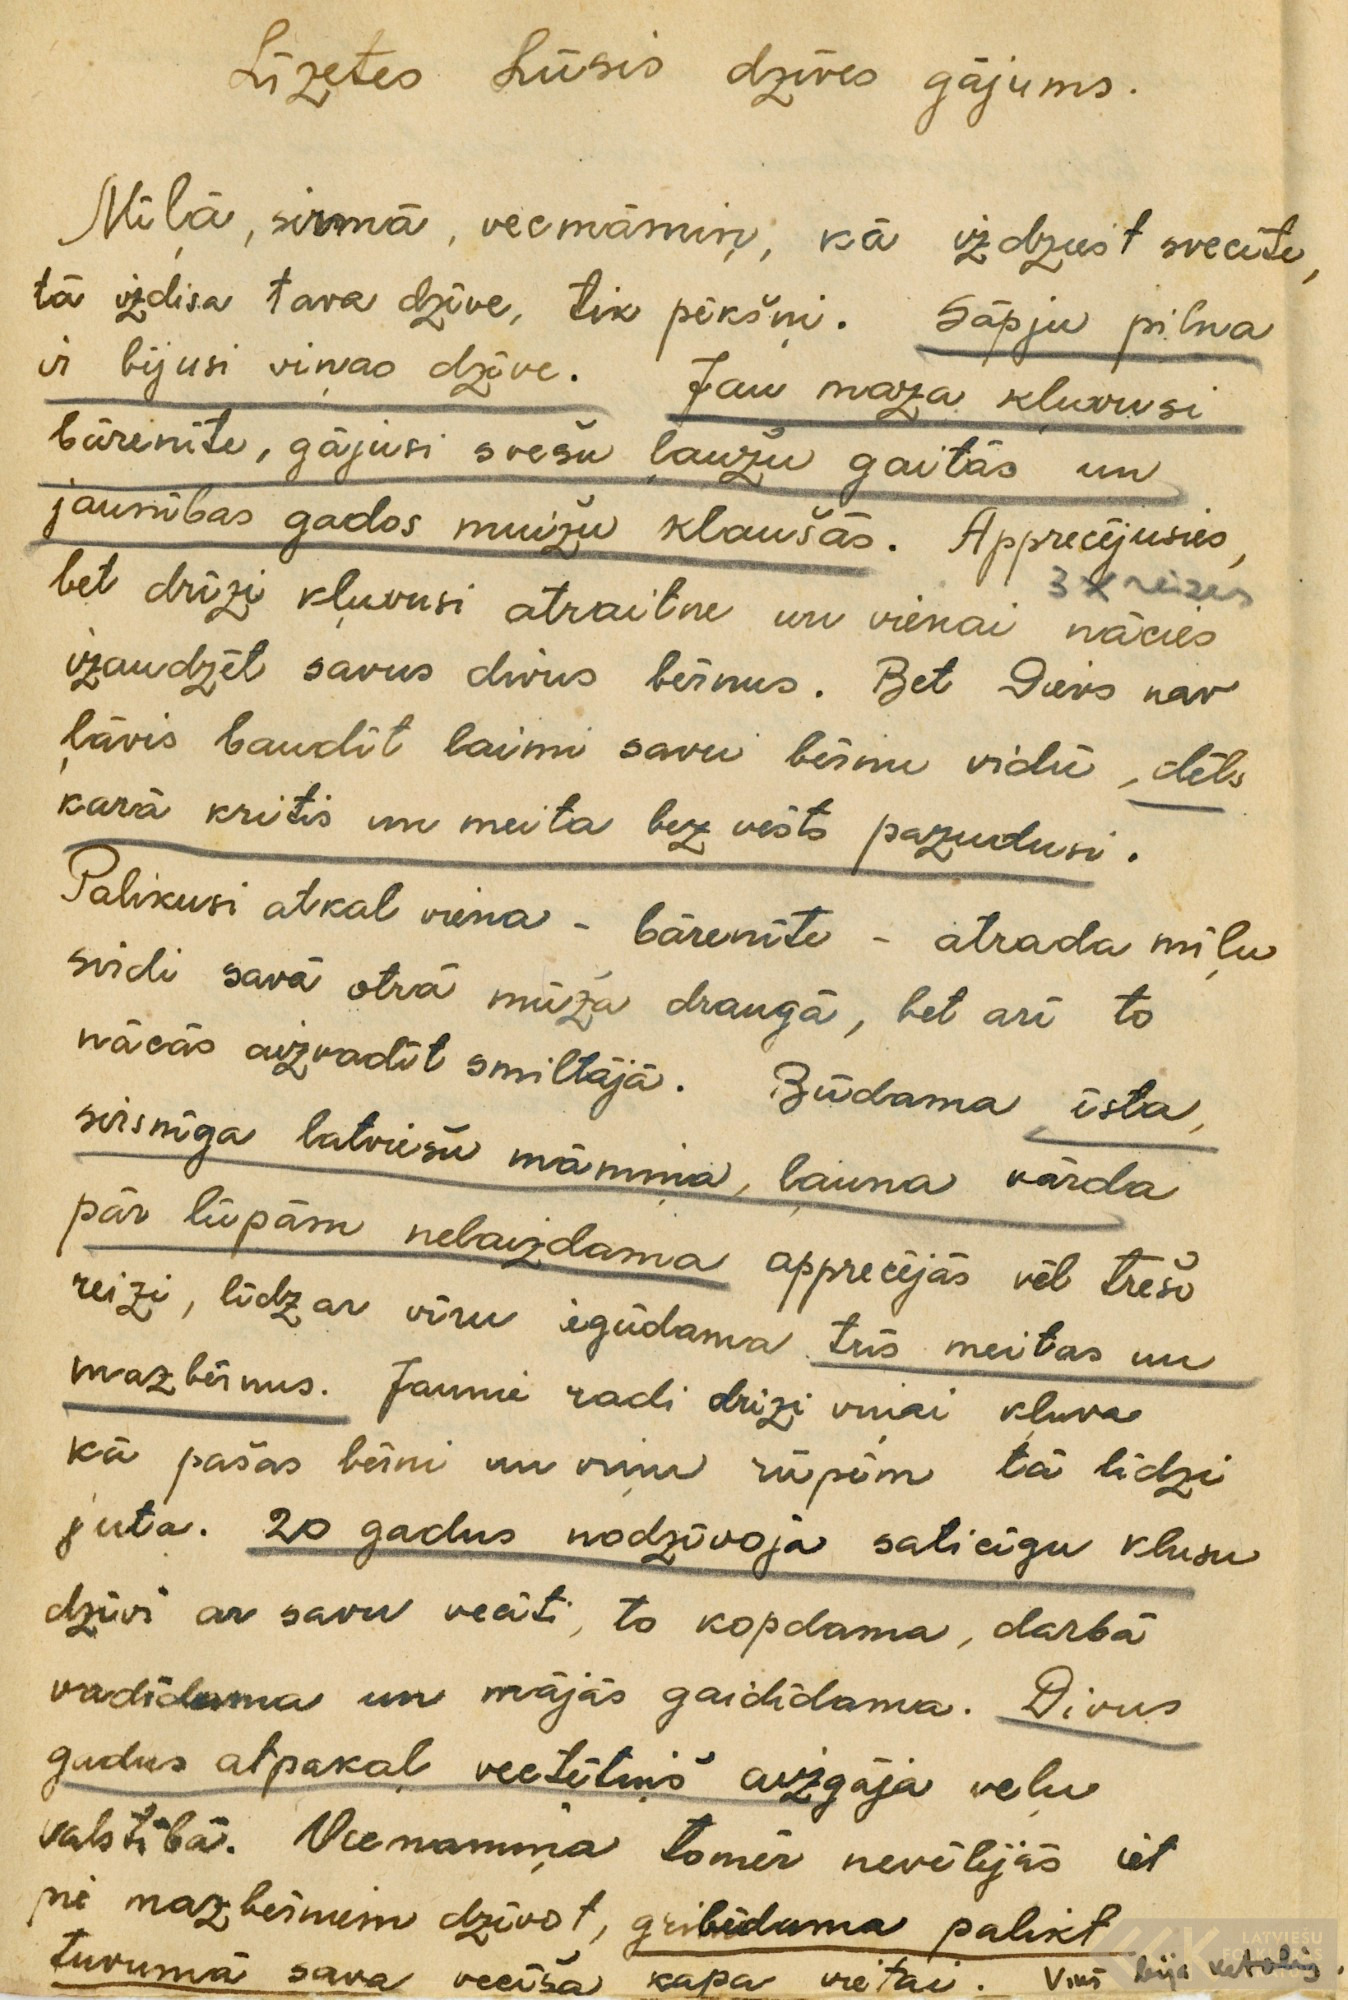 Līzetes Lūsis dzīves gājums.
Mīļā, sirmā, vecmāmiņ, kā izdziest svecīte,
tā izdisa tava dzīve, tik pēkšņi. Sāpju pilna
ir bijusi viņas dzīve. Jau maza kļuvusi
bārenīte, gājusi svešu ļaužu gaitās un
jaunības gados muižu klaušās. Apprecējusies,
3 x reizes
bet drīzi kļuvusi atraitne un vienai nācies
izaudzēt savus divus bērnus. Bet Dievs nav
ļāvis baudīt laimi savu bērnu vidū, dēls
karā kritis un meita bez vēsts pazudusi.
Palikusi atkal viena - bārenīte - atrada mīļu
sirdi savā otrā mūža draugā, bet arī to
nācās aizvadīt smiltājā. Būdama īsta,
sirsnīga latviešu māmiņa, ļauna vārda
pār lūpām nelaizdama apprecējās vēl trešo
reizi, līdz ar vīru iegūdama trīs meitas un
mazbērnus. Jaunie radi drīzi viņai kļuva
kā pašas bērni un viņu rūpēm tā līdzi
juta. 20 gadus nodzīvoja saticīgu klusu
dzīvi ar savu vecīti, to kopdama, darbā
vadīdama un mājās gaidīdama. Divus
gadus atpakaļ vectētiņš aizgāja veļu
valstībā. Vecmāmiņa tomēr nevēlējās iet
pie mazbērniem dzīvot, gribēdama palikt
tuvumā sava vecīša kapa vietai. Viņš bija katolis.
LATVIEŠU
FOLKLORAS